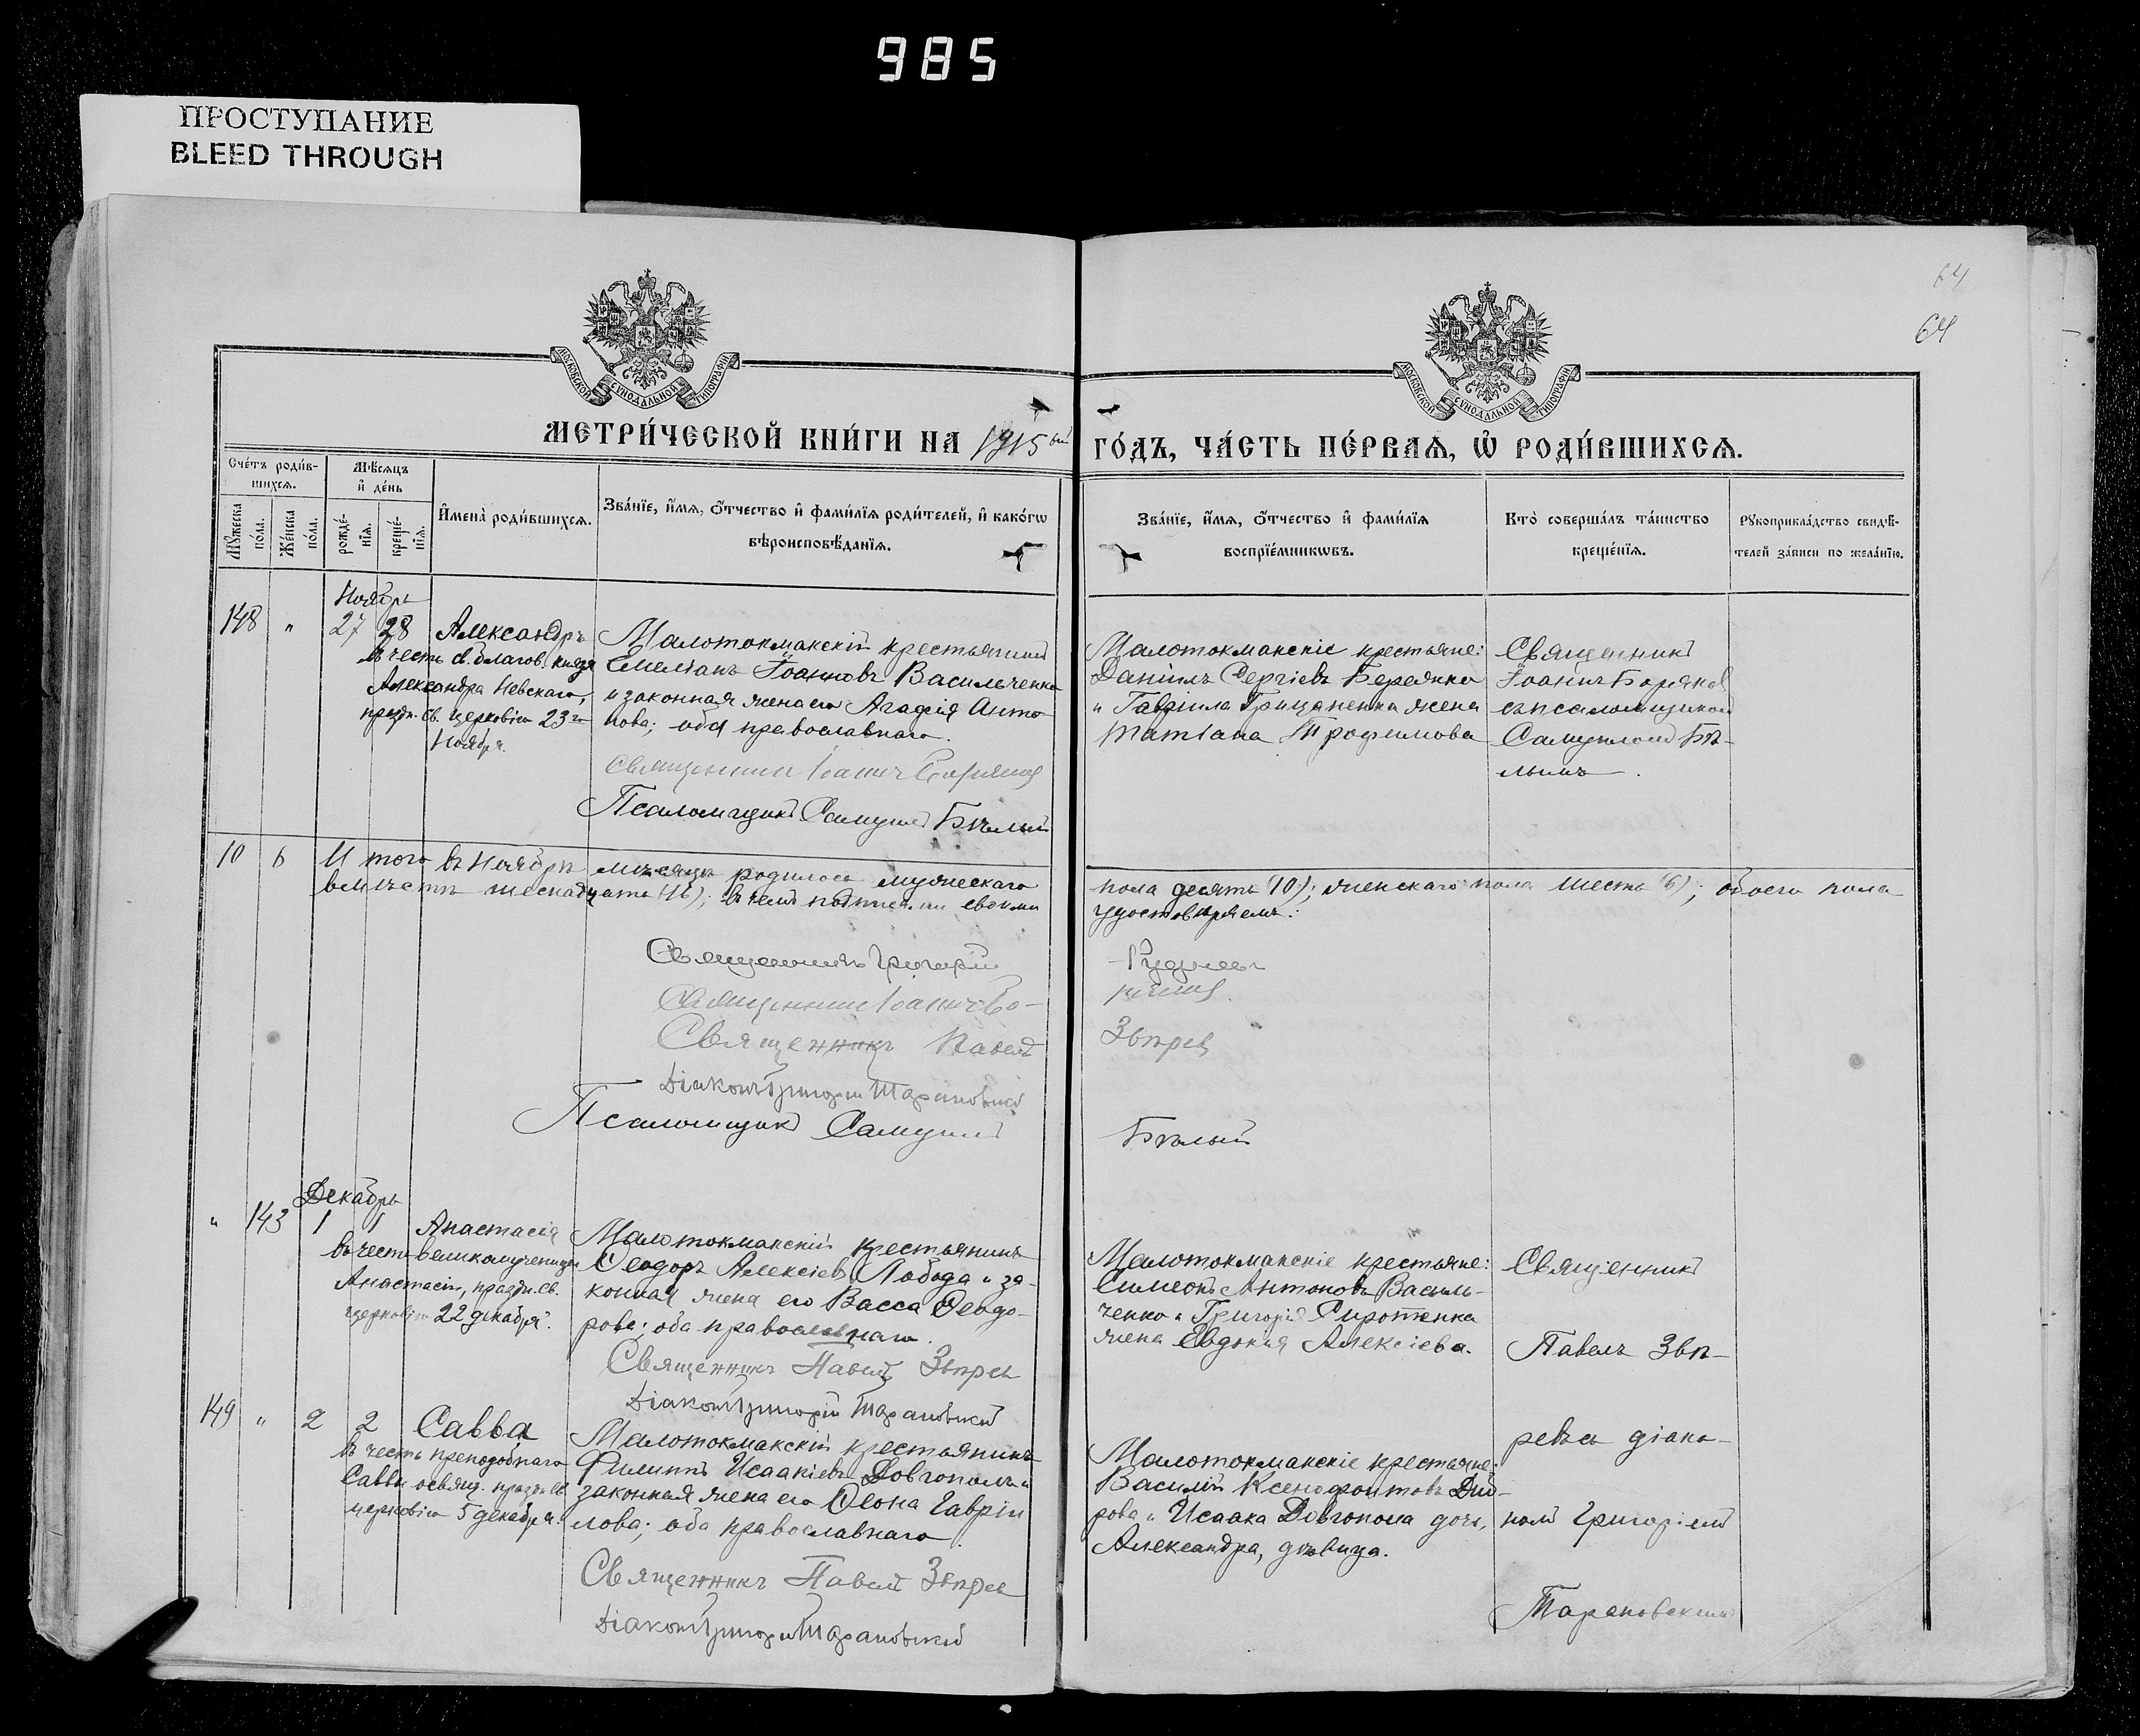 985
ПРОСТУПАНИЕ
BLEED THROUGH
64
64
МОСКОВСКОЙ СѴНОДАЛЬНОЙ ТИПОГРАФІИ
МОСКОВСКОЙ СѴНОДАЛЬНОЙ ТИПОГРАФІИ
МЕТРИ́ЧЕСКОЙ КНИ́ГИ НА 1915ый
ГО́ДЪ, ЧА́СТЬ ПЕ́РВАѦ, Ѡ҆ РОДИ́ВШИХСѦ.
Сче́тъ роди́в-
шихсѧ.
Мꙋ́жеска по́ла.
Же́нска по́ла.
Мѣ́сѧцъ
и҆ де́нь
рожде́-
нїѧ.
креще́-
нїѧ.
И҆мена̀ роди́вшихсѧ.
Зва́нїе, и҆́мѧ, ѻ҆́тчество и҆ фами́лїѧ роди́телей, и҆ како́гѡ
вѣроисповѣ́данїѧ.
Зва́нїе, и҆́мѧ, ѻ҆́тчество и҆ фами́лїѧ
воспрїе́мникѡвъ.
Кто̀ соверша́лъ та́инство
креще́нїѧ.
Рꙋкоприкла́дство свидѣ́-
телей за́писи по жела́нїю.
Ноябрь
148 " 27 28 Александръ
въ честь св. благов. князя
Александра Невскаго,
праздн. св. церковію 23го
Ноября.
Малотокмакскій крестьянинъ
Емеліанъ Іоанновъ Васильченко
и законная жена его Агафія Анто-
нова; оба православнаго.
Священникъ Іоаннъ
Псаломщикъ Самуилъ Бѣлый
Малотокмакскіе крестьяне:
Даніилъ Сергіевъ
и Гавріила Грицаненка жена
Татіана Трофимова
Священникъ
Іоаннъ
съ псаломщикомъ
Самуиломъ Бѣ-
лымъ.
10 6 И того въ Ноябрѣ мѣсяцѣ родилось мужескаго
пола десять (10); женскаго пола шесть (6); обоего пола
вмѣстѣ шеснадцать (16); въ чемъ подписями своими
удостовѣряемъ:
Священникъ Григорій Руднев
Священникъ Іоаннъ
Священникъ Павелъ Звѣрев
Діаконъ Григорій Тарановскій
Псаломщикъ Самуилъ Бѣлый
Декабрь
" 143 1 1 Анастасія
въ честь великомученицы
Анастасіи, праздн. св.
церковію 22 декабря.
Малотокмакскій крестьянинъ
Ѳеодоръ Алексіевъ Лобода и за-
конная жена его Васса Ѳеодо-
рова; оба православнаго.
Священникъ Павелъ Звѣрев
Діаконъ Григорій Тарановскій
Малотокмакскіе крестьяне:
Симеонъ Антоновъ Василь-
ченко и Григорія Сиротенка
жена Евдокія Алексіева.
Священникъ
Павелъ Звѣ-
149 " 2 2 Савва
въ честь преподобнаго
Саввы освящ. праздн. св.
церковію 5 декабря.
Малотокмакскій крестьянинъ
Филиппъ Исаакіевъ Довгополъ и
законная жена его Ѳеона Гаврі-
лова; оба православнаго.
Священникъ Павелъ Звѣрев
Діаконъ Григорій Тарановскій
Малотокмакскіе крестьяне:
Василій Ксенофонтовъ
рова и Исаака Довгопола дочь,
Александра, дѣвица.
ревъ съ діако-
номъ Григоріемъ
Тарановскимъ